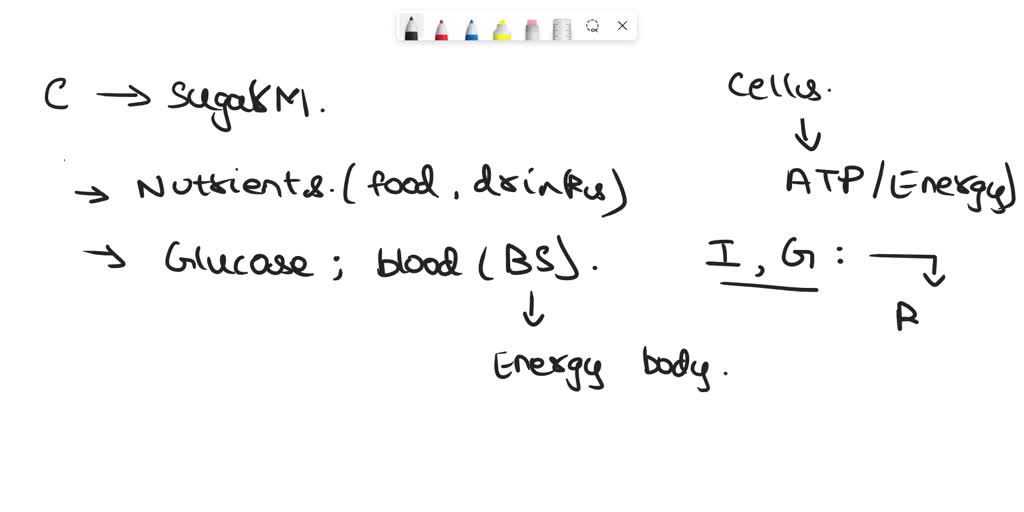 C → sugar M.
→ Nutrients. (food, drinks)
→ Glucose; blood (BS).
↓
Energy body.
Cells.
↓
ATP/Energy)
I, G :
R